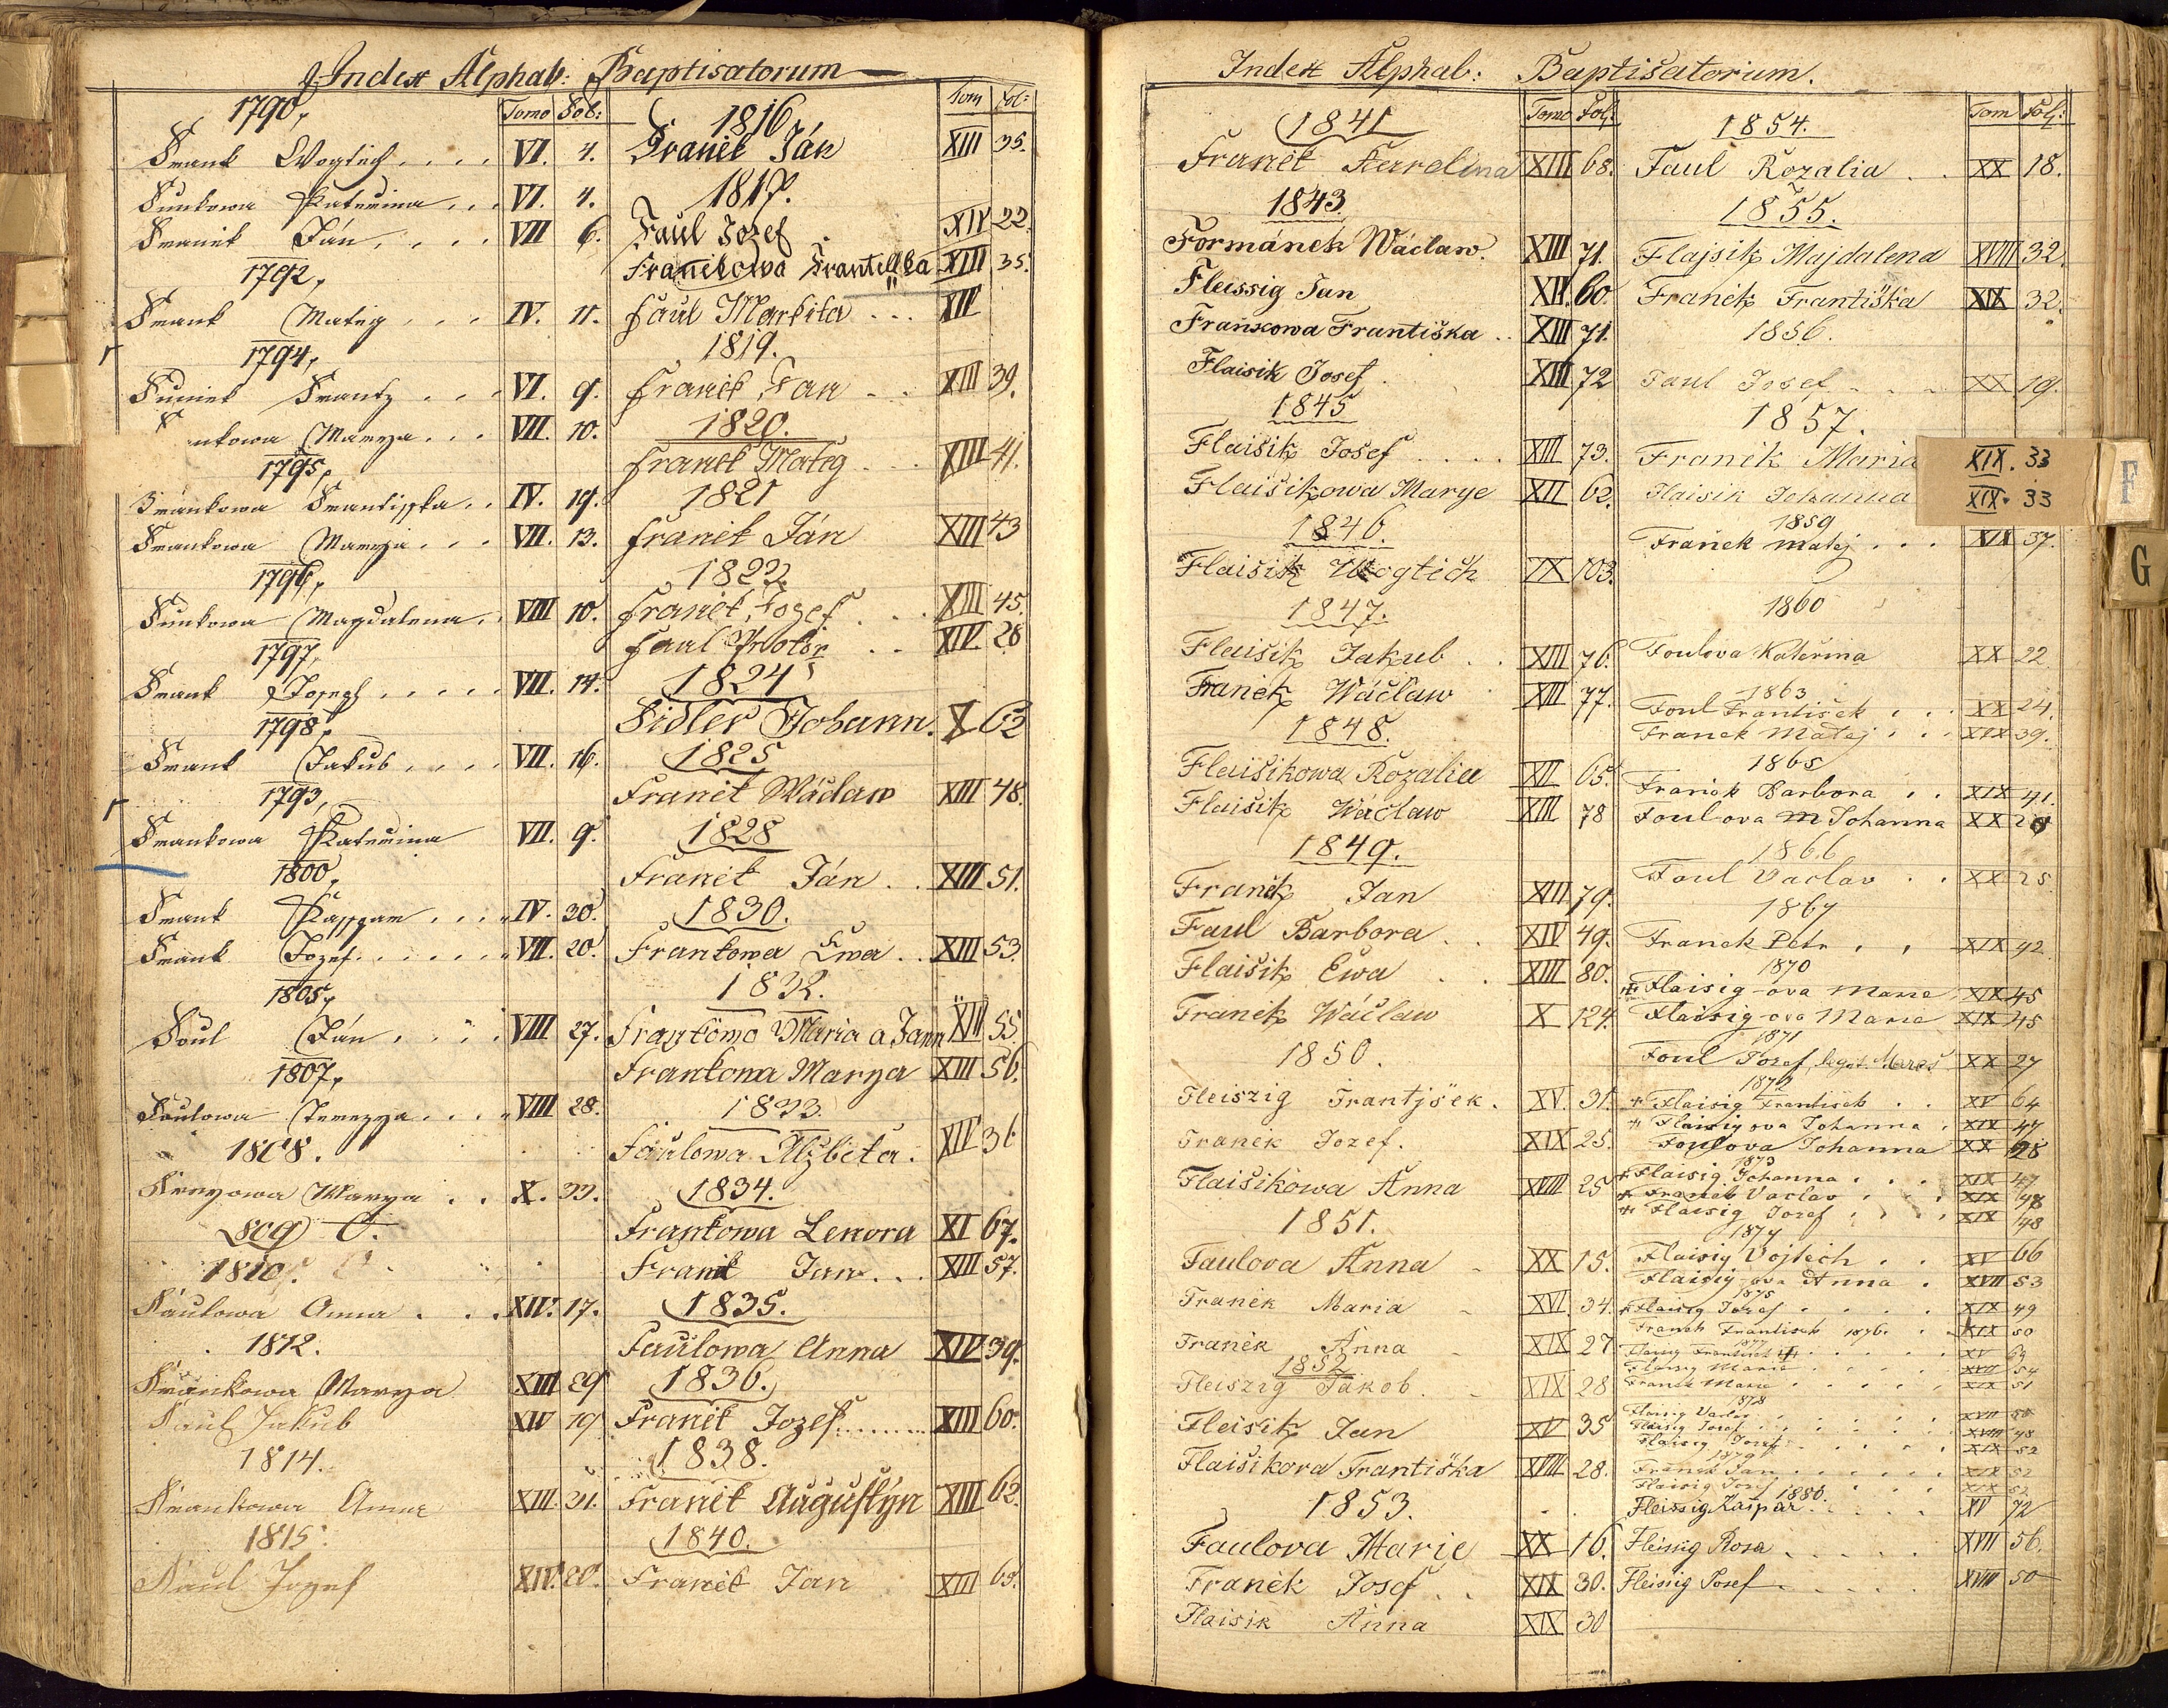 Index Alphab: Baptisatorum
Tomo Fol:
1790,
Frank Wogtich .... VI. 4.
Funkowa Katerina ... VI. 4.
Franek Ján .... VII 6.
1792,
Frank Mateg ... IV. 11.
1794,
Franz ... VI. 9.
nkowa Marya ... VII. 10.
1795,
Frantisska .. IV. 19.
Frankowa Marya ... VII. 13.
1796,
Funkowa Magdalena . VIII 10.
1797,
Frank Joseph ..... VII. 14.
1798,
Frank Jakub .... VII. 16.
1793,
Frankowa Katerina VII. 9.
1800,
Frank Kasspar .... IV. 30.
Frank Jozef ...... VII. 20.
1805,
Foul Ján .... VIII 27.
1807,
Faulowa Terezya .... VIII 28.
1808.
Marya .. X. 33.
809 O.
1810.
Faulowa Anna ... XIV. 17.
1812.
Frankowa Marya XIII 29
Faul Jakub XIV 19
1814.
Frankowa Anna XIII. 31.
1815.
Faul Jozef XIV. 20.
Tom Fol:
1816
Franek Ján XIII 35.
1817.
Faul Jozef XIV 22.
Franekowa XIII 35.
Faul Markita ... XIV
1819.
Franek Jan .. XIII 39.
1820.
Franek Mateg .. XIII 41.
1821
Franek Ján XIII 43
1822
Franek Jozef . XIII 45.
Faul .. XIV. 28
1824
Fidler Johann. X 62
1825
Franek Wáclaw XIII 48.
1828
Franek Ján .. XIII 51.
1830.
Frankowa Ewa .. XIII 53.
1832.
Maria a Jann XIII 55.
Frankowa Marya XIII 56.
1833.
Faulowa Alžbeta. XIV 36
1834.
Frankowa Lenora XI 67.
Franek Jan ... XIII 57.
1835.
Faulowa Anna XIV 39.
1836.
Franek Jozef ....... XIII 60.
1838.
Franek Augustýn XIII 62.
1840.
Franek Jan XIII 65.
Index Alphab: Baptisatorium.
Tomo Fol:
1841
Franek Karolina XIII 68.
1843.
Formánek Wáclaw. XIII 71.
Fleissig Jan XII 60.
Frankowa Františka .. XIII 71.
Flaisik Josef . XIII 72
1845
Flaišik Josef .... XIII 73.
Flaišikowa Marye XII 62.
1846.
Flaišik Wogtěch IX 103.
1847.
Flaišik Jakub .. XIII 76.
Franěk Wáčlaw XIII 77.
1848.
Flaišikowa Rozalia XII 65.
Flaišik Wáčlaw XIII 78
1849.
Franěk Jan XIII 79.
Faul Barbora .. XIV 49.
Flaišik Ewa .. XIII 80.
Franěk Wáčlaw X 124.
1850.
Fleiszig Frantjšek . XV. 31.
Franěk Jozef. XIX 25.
Flaišikowa Anna XVIII 25
1851.
Faulova Anna - XX 15.
Franěk Maria - XVI 34.
Franěk Anna - XIX 27
1852
Fleiszig Jakob . - XIX 28
Fleisik Jan XV 35
Flaišikova Františka XVIII 28.
1853.
Faulova Marie XX 16.
Franěk Josef .. XIX 30.
Flaisik Anna XIX 30
Tom Fol:
1854.
Faul Rozalia .. XX 18.
1855.
Flajsik Majdalena XVIII 32.
Franěk Františka XIX 32.
1856.
Faul Josef - - - XX 19.
1857.
Franěk Maria XIX. 33
Flaisik Johanna XIX. 33
F
G
1859
Franěk Matěj ... XIX 37.
1860
Foulova Kateřina XX 22
1863
Foul František ... XX 24.
Franek Matěj ... XIX 39.
1865
Franěk Barbora .. XIX 41.
Foul-ova M Johanna XX 2
1866
Foul Vaclav .. XX 25
1867
Franek Petr . . XIX 42
1870
Flaisig-ova Marie XIX 45
Flaisig-ova Marie XIX 45
1871
Foul Josef, legit. XX 27
1872
+ Flaisig Frantisek .. XV 64
+ Flaisigova Johanna . XIX 47
Foulova Johanna XX 28
1873
+ Flaisig Johanna ... XIX 47
+ Franek Vaclav ... XIX 48
+ Flaisig Josef .... XIX 48
1874
Flaisig Vojtěch .. XV 66
Flaisig-ova Anna . XVIII 53
1875
+ Flaisig Josef .... XIX 49
Franek Frantisek 1876. . XIX 50
1877
Flaisig Frantisek ..... XV 69
Flaisig Marie ..... XVII 54
Franek Marie ..... XIX 51
1878
Flaisig Vaclav .....
Flaisig Josef ..... XVIII 48
Flaisig Josef ..... XIX 52
1879
Franek Jan ..... XIX 52
Flaisig Josef ... XIX 52
1880.
Fleissig Kašpar ..... XV 72
Fleissig Rosa ..... XVII 56.
Fleissig Josef ..... XVIII 50